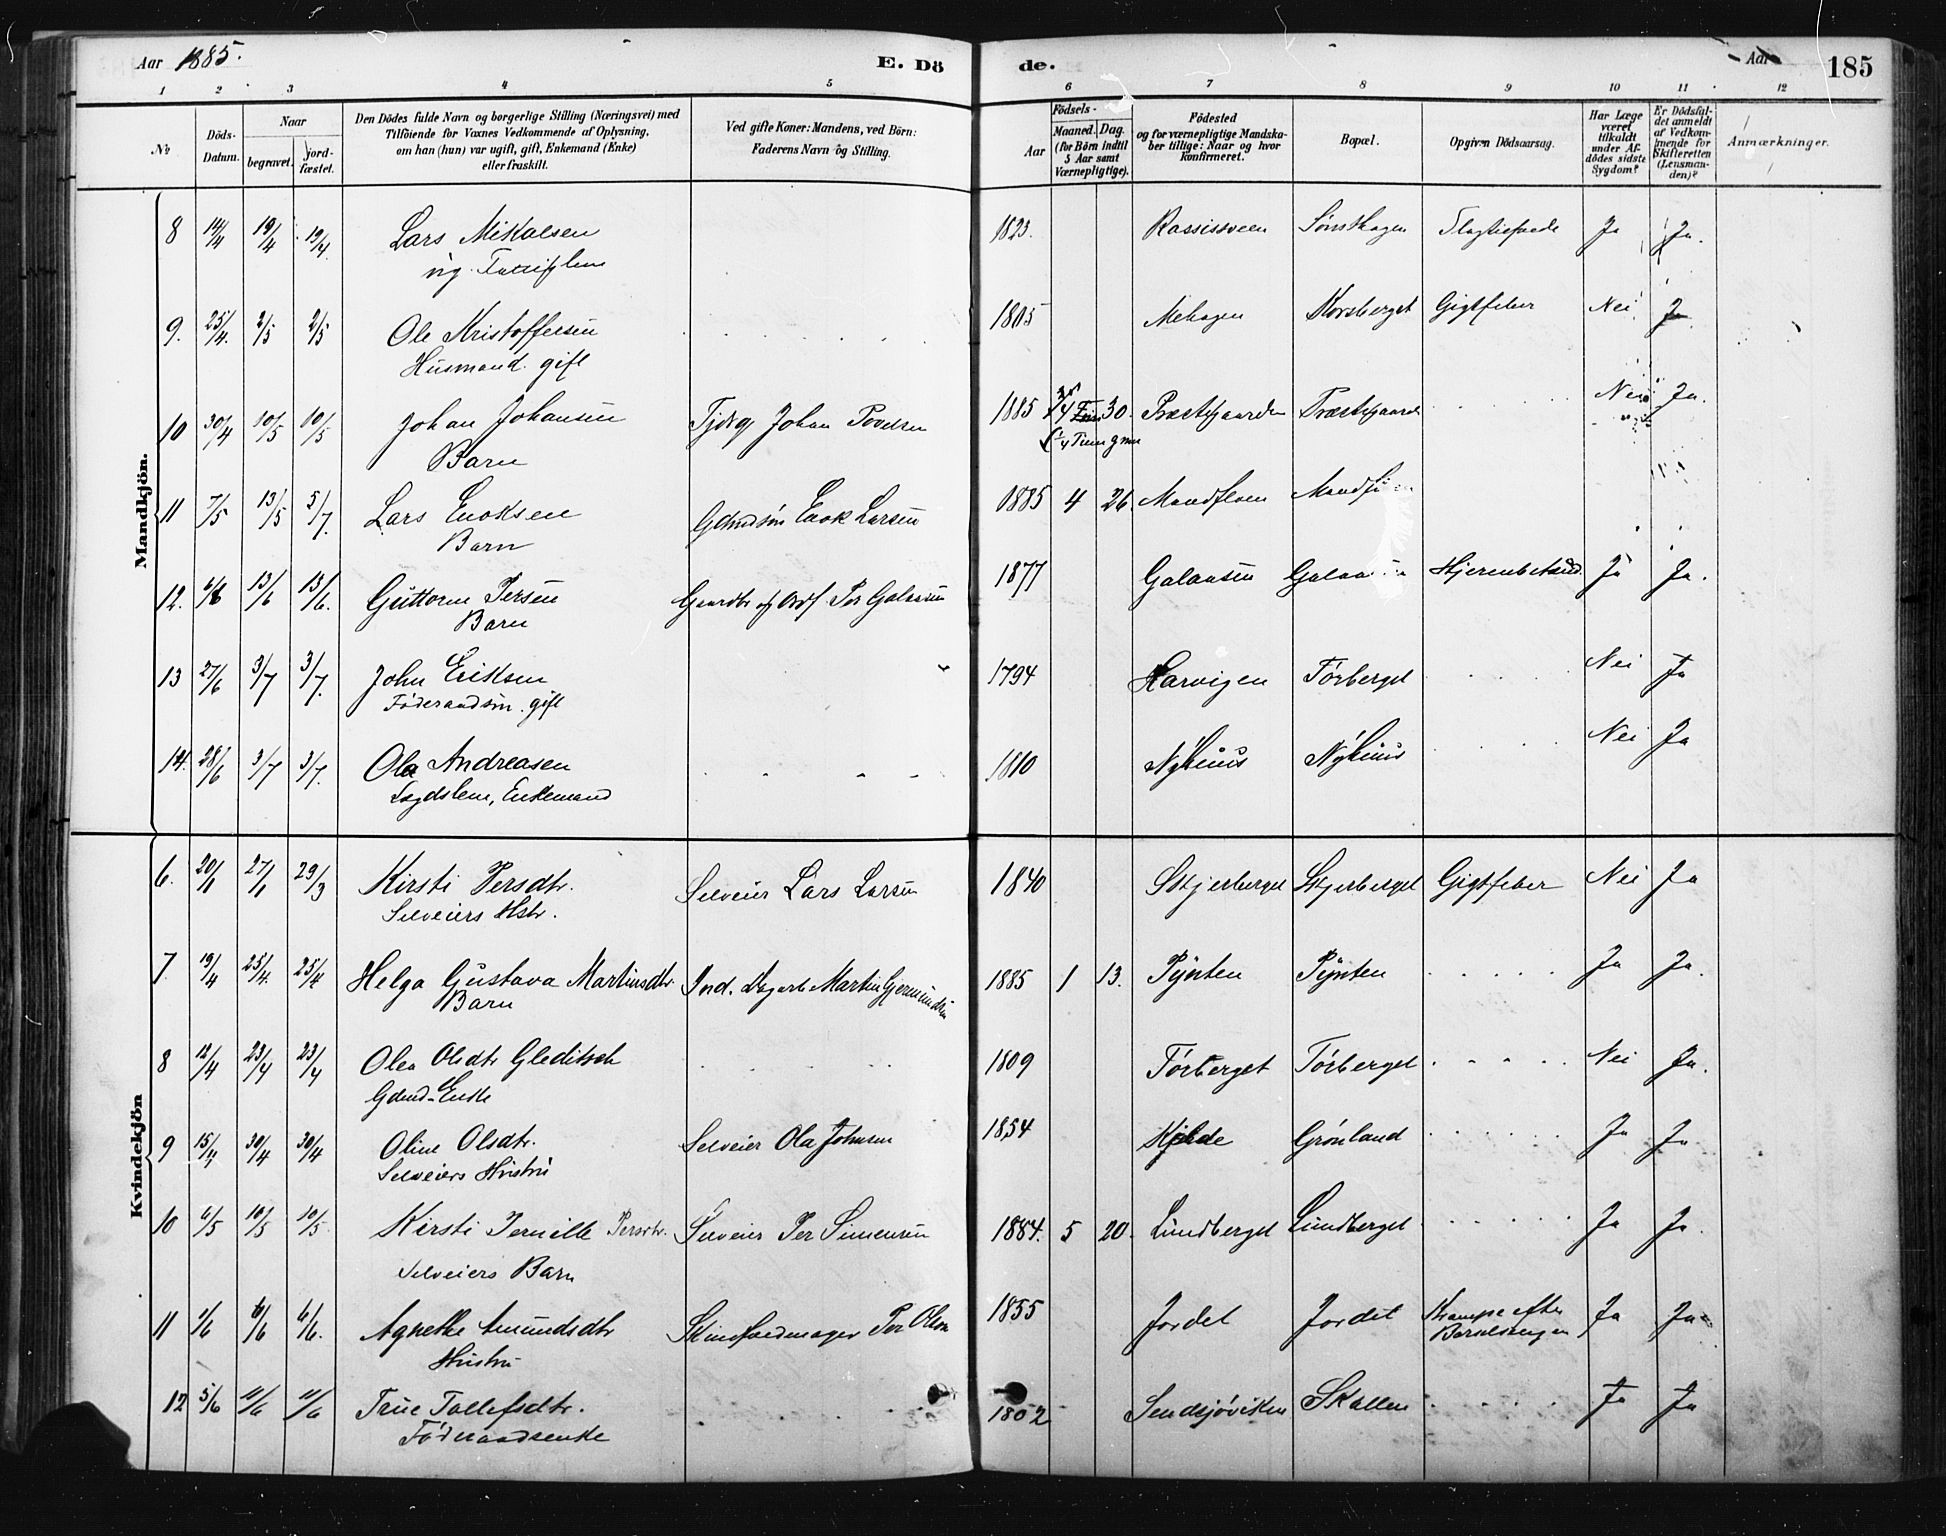 Aar 1885.
E. Dö
de.
Aar
185
1 2 3 4 5 6 7 8 9 10 11 12
№
Döds-Datum.
Naar
begravet.
jord-fæstet.
Den Dödes fulde Navn og borgerlige Stilling (Næringsvei) med
Tilföiende for Voxnes Vedkommende af Oplysning,
om han (hun) var ugift, gift, Enkemand (Enke)
eller fraskilt.
Ved gifte Koner: Mandens, ved Börn:
Faderens Navn og Stilling.
Födsels-
Aar
Maaned. Dag.
(for Börn indtil
5 Aar samt
Værnepligtige).
Födested
og for værnepligtige Mandska-
ber tillige: Naar og hvor
konfirmeret.
Bopæl.
Opgiven Dödsaarsag.
Har Læge
været
tilkaldt
under Af-
dödes sidste
Sygdom?
Er Dödsfal-
det anmeldt
af Vedkom-
mende for
Skifteretten
(Lensman-
den)?
Anmærkninger.
Mandkjön.
8 14/4 19/4 19/4 Lars Mikalsen 1823. Ja Ja.
9. 25/4. 2/5 2/5 Ole Kristoffersen 1805 Mehagen Korsberget Gigtfeber Nei Ja.
Husmand. gift
10 30/4 10/5 10/5 Johan Johansen Johan Povelsen 1885 30. Præstegaarden Præstegaarden Nei Ja.
Barn
11 7/5 13/5 5/7. Lars Enoksen Enok Larsen 1885 4 26.
Barn
12. 13/6 13/6. Guttorm Persen Per Galaasen 1877 Galaasen Galaasen Ja Ja.
Barn
13 27/6 3/7 3/7. John Eriksen 1794 Harvigen Törberget Nei Ja
gift
14. 28/6 3/7 3/7. Ola Andreasen 1810 Nyhuus Nyhuus Nei Ja
Lægdslem, Enkemand
Kvindekjön
6. 27/1 29/3 Kirsti Persdtr. Selveier Lars Larsen 1840 Skjerberget Skjerberget Gigtfeber Nei Ja
Selveiers Hstr.
7. 19/4 25/4. 25/4 Helga Gustava Martinsdtr. Ind. Martin Gjermundsen 1885 1 13. Pynten Pynten Ja Ja.
Barn
8 12/4 23/4 23/4 Olea Olsdtr Gleditsch 1809 Törberget Törberget Nei Ja.
Gdmd-Enke
9 15/4 30/4 30/4 Oline Olsdtr. Selveier Ola Johnsen 1854 Kjelde Grönland Ja Ja
Selveiers Hustru
10 6/5 10/5 10/5. Kirsti Pernille Persdtr. Selveier Per Simensen 1884. 5 20. Lundberget Lundberget Ja Ja.
Selveiers Barn
11 1/6 6/6 6/6. Agnethe Amundsdtr Per Olsen 1855 Jordet Jordet Krampe efter Barselsengen Ja Ja
Hustru
12 5/6 11/6 11/6 Tollefsdtr. 1802 Sendsjöviken Skallen Ja Ja
Föderaadsenke